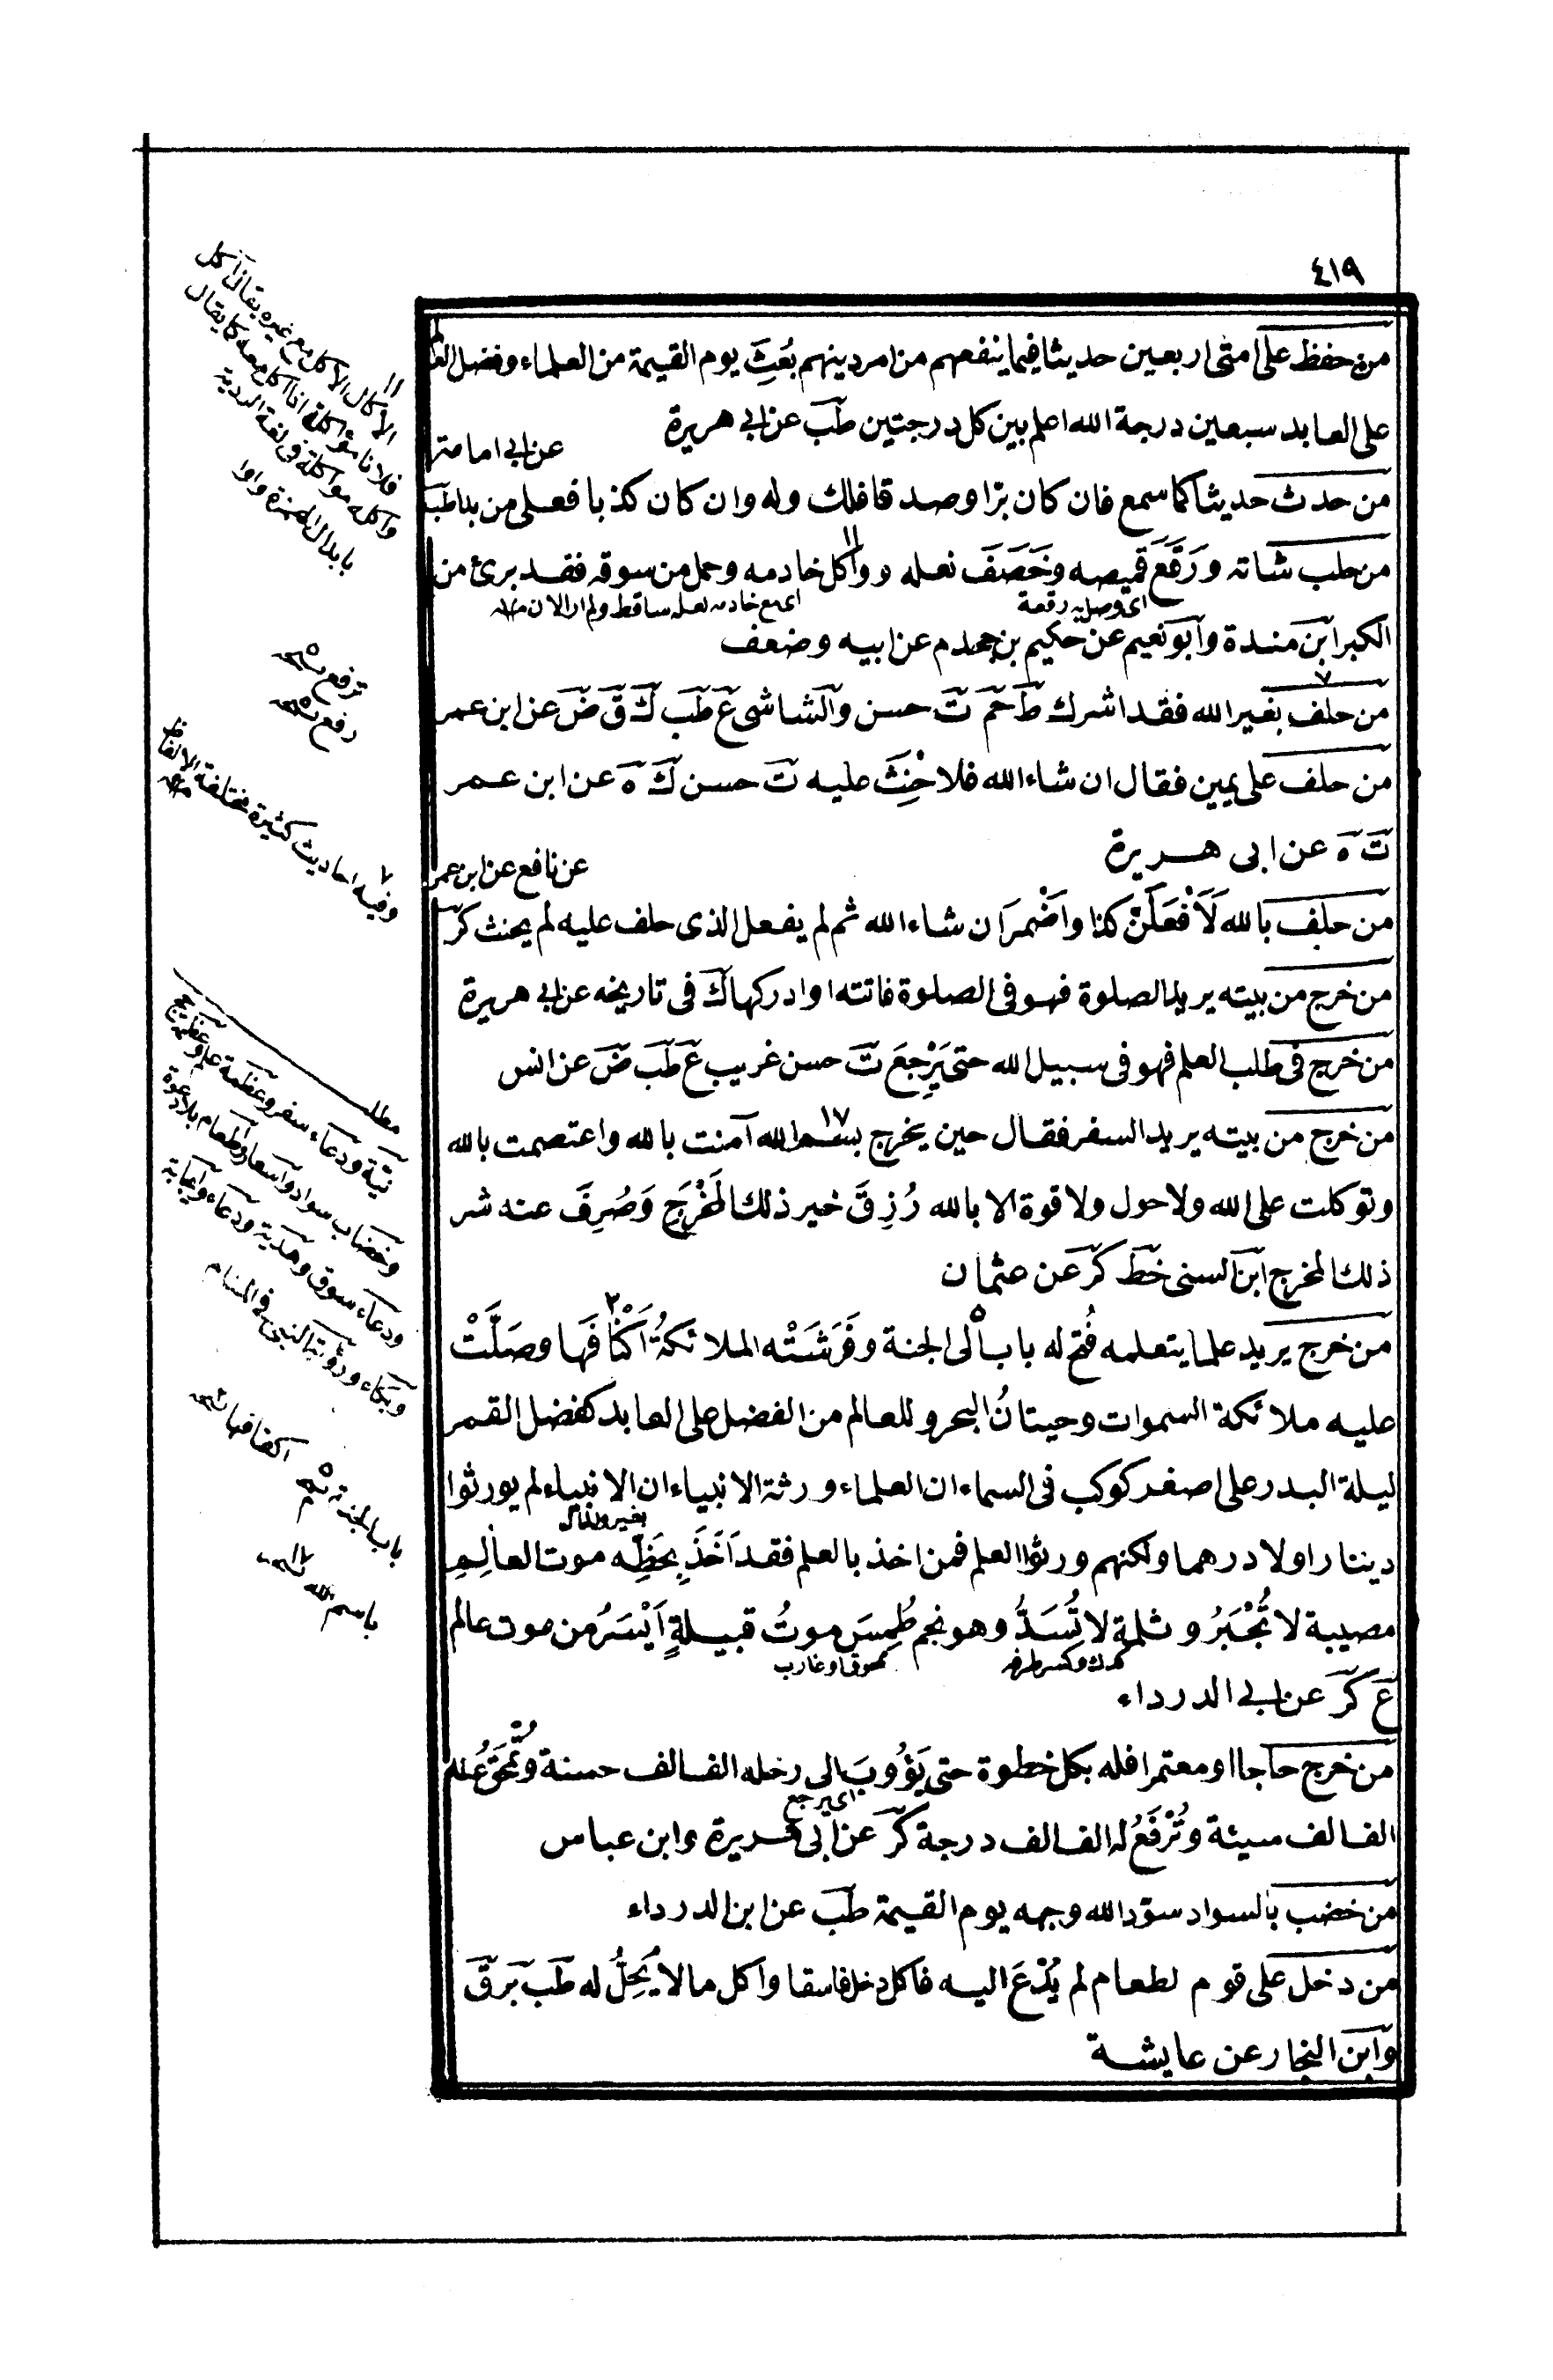 ٤١٩
من حفظ على امتى اربعين حديثا فيما ينفعهم من امر دينهم بُعِثَ يوم القيمة من العلماء وفضل العالم
على العابد سبعين درجة الله اعلم بين كل درجتين طب عن ابى هريرة
عن ابى امامة
من حدث حديثا كما سمع فان كان برّا وصدقا فلك وله وان كان كذبا فعلى من بداه طب
من حلب شاته ورَقَّعَ قميصه وخَصَفَ نعله وواكل خادمه وحمل من سوقه فقد برئ من
اى وصل به رقعة
الكبر ابن مندة وابو نعيم عن حكيم بن جحدم عن ابيه وضعف
من حلف بغير الله فقد اشرك ط حم ت حسن والشاشى ع طب ك ق ض عن ابن عمر
من حلف على يمين فقال ان شاء الله فلا حِنْثَ عليه ت حسن ك ه عن ابن عمر
ت ه عن ابى هريرة
عن نافع عن ابن عمر
من حلف بالله لَاَفْعَلَنَّ كذا واَضْمَرَ ان شاء الله ثم لم يفعل الذى حلف عليه لم يحنث كر
من خرج من بيته يريد الصلوة فهو فى الصلوة فاتته او ادركها ك فى تاريخه عن ابى هريرة
من خرج فى طلب العلم فهو فى سبيل الله حتى يَرْجِعَ ت حسن غريب ع طب ض عن انس
من خرج من بيته يريد السفر فقال حين يخرج بسم الله آمنت بالله واعتصمت بالله
١٧
وتوكلت على الله ولا حول ولا قوة الا بالله رُزِقَ خير ذلك المَخْرَجِ وَصُرِفَ عنه شر
ذلك المخرج ابن السنى خط كر عن عثمان
من خرج يريد علما يتعلمه فُتح له باب الى الجنة وفَرَشَتْه الملائكةُ اَكْنَافَها وصَلَّتْ
عليه ملائكة السموات وحيتانُ البحر وللعالم من الفضل على العابد كفضل القمر
ليلة البدر على اصغر كوكب فى السماء ان العلماء ورثة الانبياء ان الانبياء لم يورثوا
دينارا ولا درهما ولكنهم ورثوا العلم فمن اخذ بالعلم فقد اَخَذَ بِحَظِّه موت العالِمِ
مصيبة لا تُجْبَرُ وثلمة لا تُسَدُّ وهو نجم طُمِسَ موتُ قبيلةٍ اَيْسَرُ من موت عالم
ع كر عن ابى الدرداء
من خرج حاجا او معتمرا فله بكل خطوة حتى يَؤُوبَ الى رحله الف الف حسنة وتُمْحَى عنه
اى يرجع
الف الف سيئة وتُرْفَعُ له الف الف درجة كر عن ابى هريرة وابن عباس
من خضب بالسواد سوّد الله وجهه يوم القيمة طب عن ابن الدرداء
من دخل على قوم لطعام لم يُدْعَ اليه فاكل دخل فاسقا واكل ما لا يَحِلُّ له طب بر ق
وابن النجار عن عايشة
الآكال الاكل مع غيره يقال آكل
فلانا مؤاكلة اذا اكل معه كما يقال
واكله مواكلة فى لغة الردية
بابدال الهمزة واوا
ترفع نسخه
رفع نسخه
وفيه احاديث كثيرة مختلفة الالفاظ
مطلب
نية ودعاء سفر وعظمة علم
وخضاب سواد واسعاد واطعام بلا دعوة
ودعاء سوق وهدية ودعاء واجابة
وبكاء ورؤية النبى فى المنام
اكنافها نسخه
باب الجنة نسخه
باسم الله